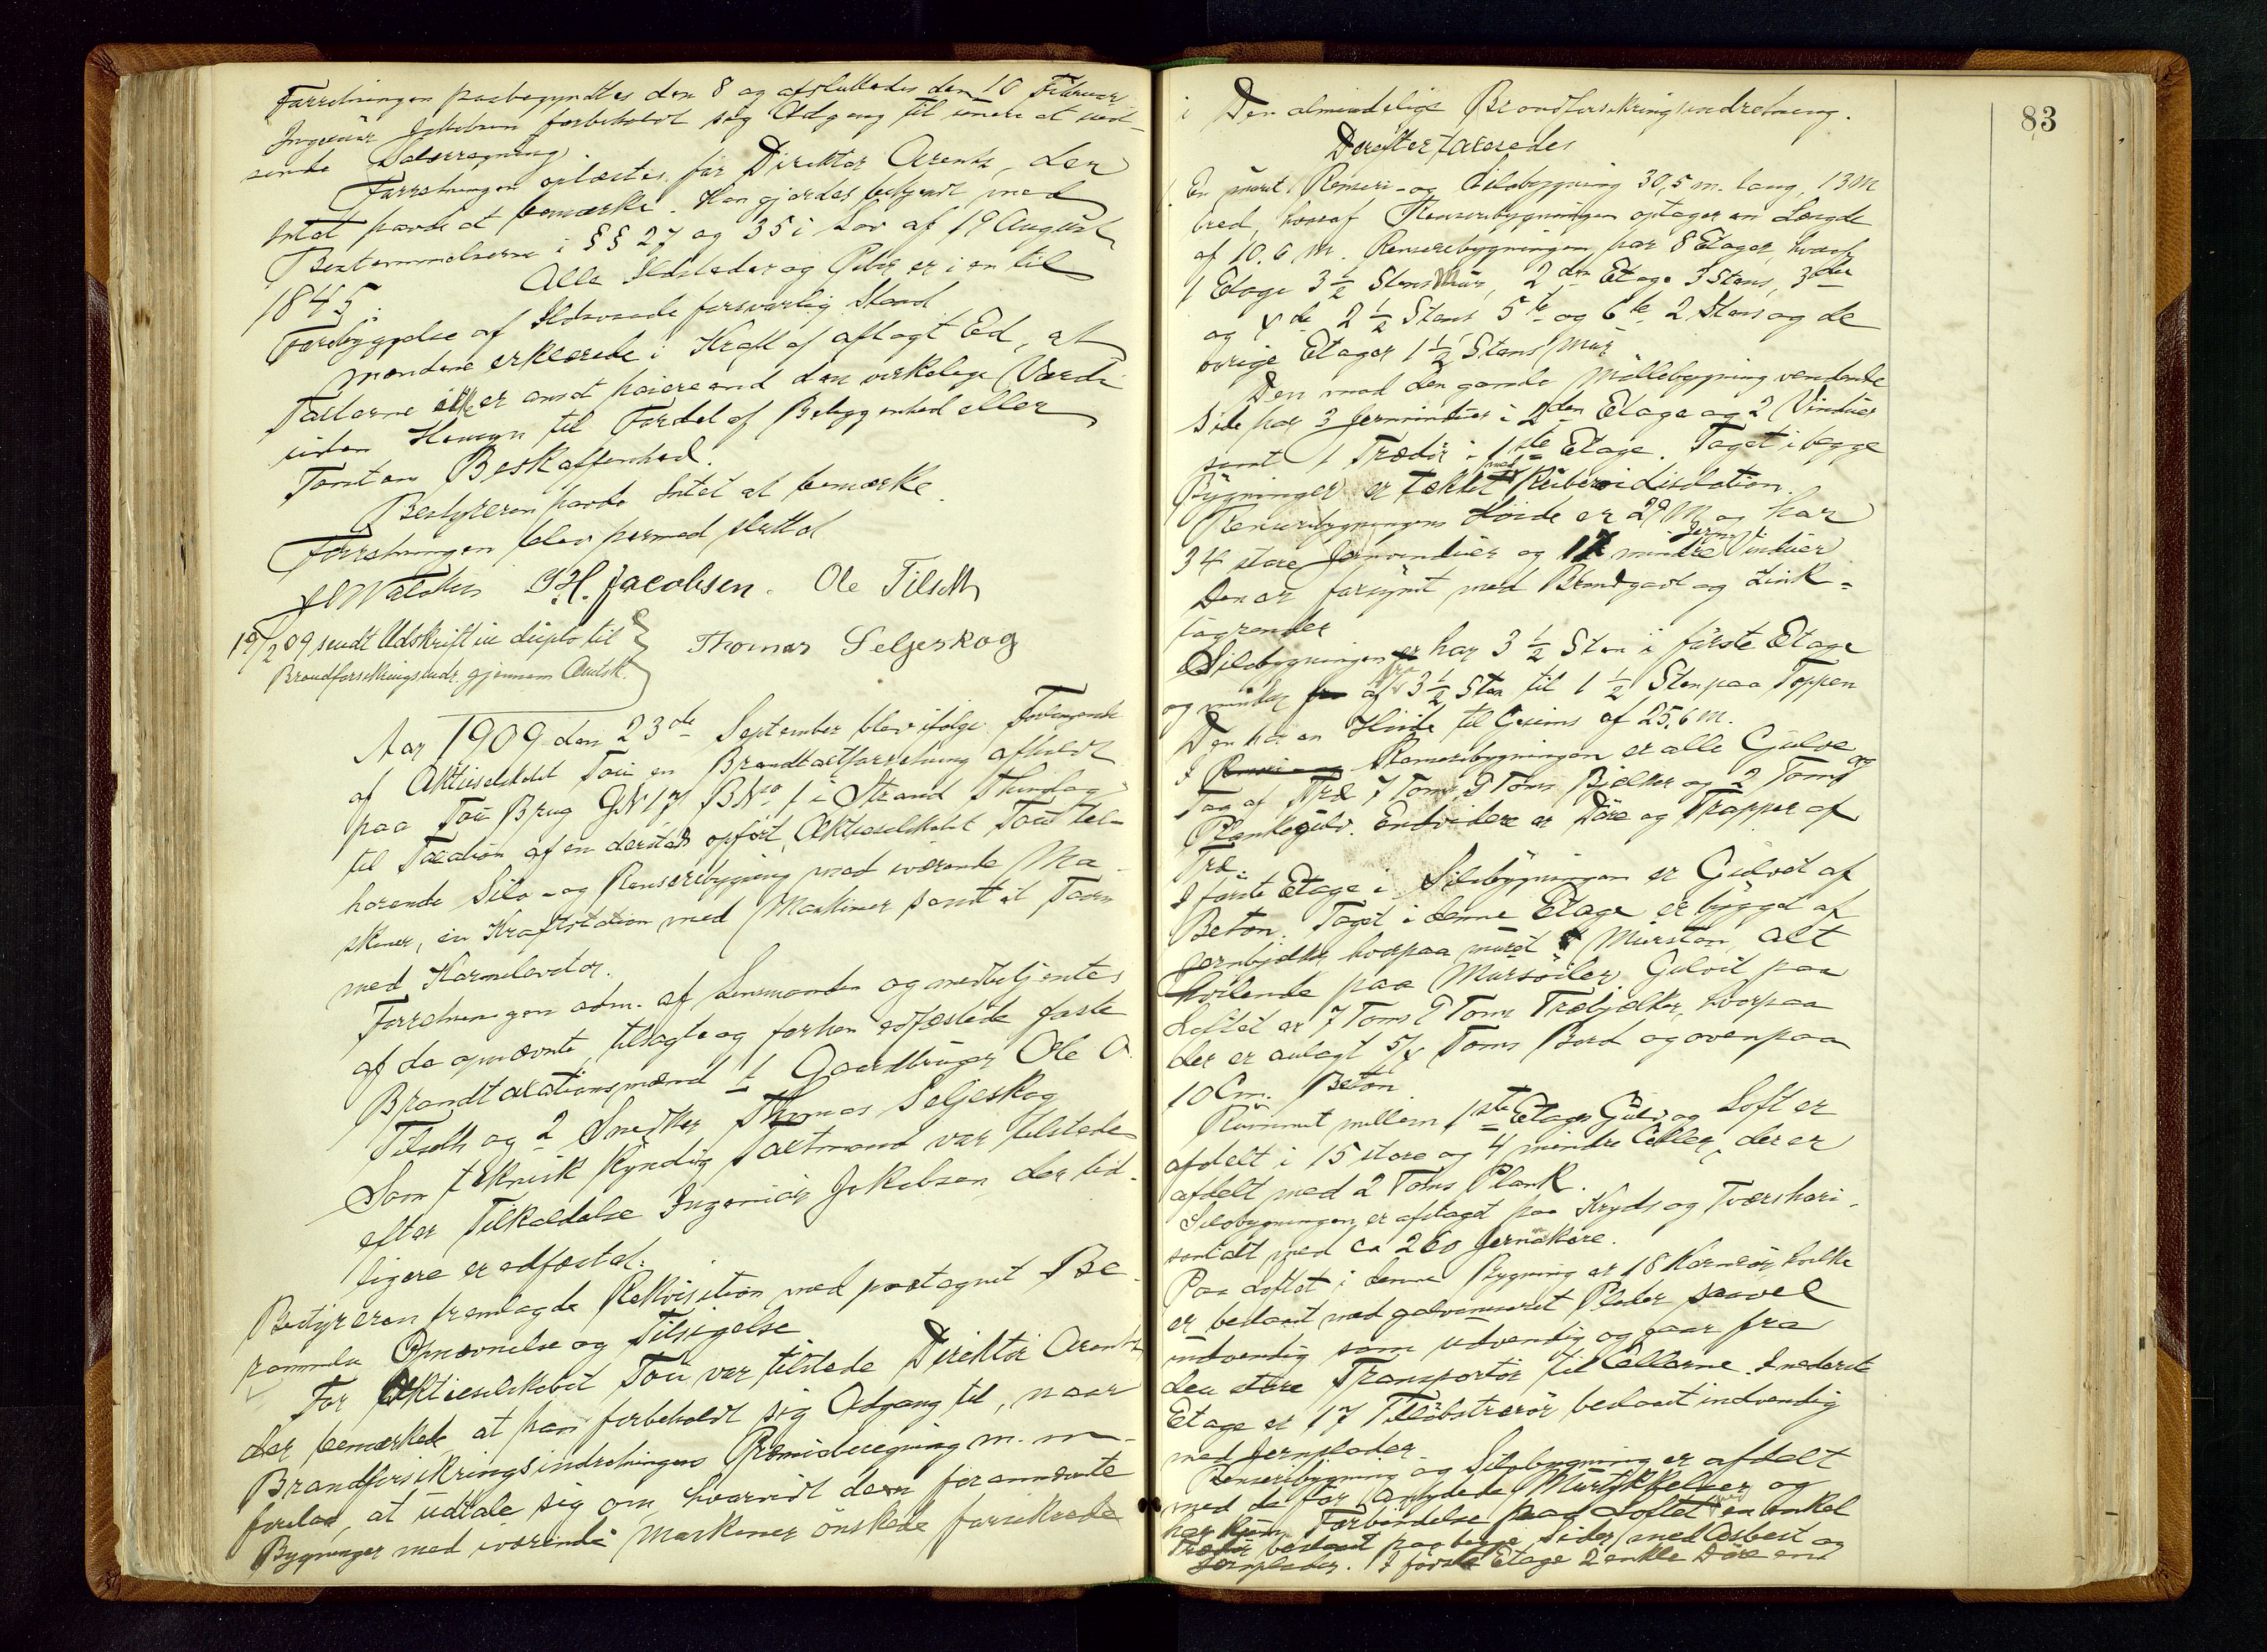 Forretningen paabegyndtes den 8 og afsluttedes den 10 Februar
Ingeniør Jakobsen forbeholdt sig Adgang til senere at ind-
sende Salærregning.
Forretningen oplæstes for Direktør Arentz, der
Intet havde at bemærke. Han gjordes bekjendt med
Bestemmelserne i §§ 27 og 35 i Lov af 19 August
1845. Alle Ildsteder og Piber er i en til
Forebyggelse af Ildsvaade forsvarlig Stand
Mændene erklærede i Kraft af aflagt Ed, at
Taxterne ikke er ansat høiere end den virkelige Værdi
uden Hensyn til Fordel af Beliggenhed eller
Tomtens Beskaffenhed.
Bestyreren havde Intet at bemærke.
Forretningen blev hermed sluttet
J.H. Jacobsen. Ole Tilseth
19/2 09 sendt Udskrift in duplo til
Brandforsikringsindr. gjennem Amtsk.
Thomas Seljeskog
Aar 1909 den 23de September blev ifølge Forlangende
af Aktieselskabet Tou en Brandtaxtforretning afholdt
paa Tou Brug GNo 17 BNo 1 i Strand Thinglag
til Taxation af en dersteds opført, Aktieselskabet Tou til-
hørende Silo- og Renseribygning med iværende Ma-
skiner, en Kraftstation med Maskiner samt et Taarn
med Kornelevator.
Forretningen adm. af Lensmanden og medbetjentes
af de opnævnte, tilsagte og forhen edfæstede faste
Brandtaxationsmænd 1 Gaardbruger Ole O.
Tilseth og 2 Snedker Thomas Seljeskog
Som teknisk kyndig Taxtmand var tilstede
efter Tilkaldelse Ingeniør Jakobsen, der tid-
ligere er edfæstet.
Bestyreren fremlagde Rekvisition med paategnet Be-
rammelse Opnævnelse og Tilsigelse
For Aktieselskabet Tou var tilstede Direktør Arentz
der bemærkede at han forbeholdt sig Adgang til, naar
Brandforsikringsindretningens Præmieberegning m. m.
forelaa, at udtale sig om, hvorvidt de foran nævnte
Bygninger med iværende Maskiner ønskede forsikrede
83
i Den almindelige Brandforsikringsindretning.
Derefter taxeredes
1. En muret Renseri- og Silobygning 30,5 m. lang, 13 m
bred, hvoraf Renseribygningen optager en Længde
af 10.6 m. Renseribygningen har 8 Etager, hvoraf
1 Etage 3 1/2 Stens Mur, 2den Etage 3 Stens, 3die
og 4de 2 1/2 Stens 5te og 6te 2 Stens og de
øvrige Etager 1 1/2 Stens Mur
Den mod den gamle Møllebygning vendende
Side har 3 Jernvinduer i 2den Etage og 2 Vinduer
samt 1 Trædør i 1ste Etage. Taget i begge
Bygninger er tækket med Ruberoidisolation.
Renseribygningens Høide er 29 M og har
34 store Jernvinduer og 17 mindre Jern Vinduer
Den er forsynet med Brandgavl og Zink-
tagrender
Silobygningen har 3 1/2 Sten i første Etage
og mindsker af fra 3 1/2 Sten til 1 1/2 Sten paa Toppen
Den har en Høide til Gesims af 25,6 m.
I Renseribygningen er alle Gulve og
Tag af Træ 7 Toms 9 Toms Bjelker og 2 Toms
Plankegulv. Endvidere er Døre og Trapper af
Træ.
I første Etage i Silobygningen er Gulvet af
Beton. Taget i denne Etage er bygget af
Jernbjelker, hvorpaa muret Mursten, alt
hvilende paa Mursøiler. Gulvet paa
Loftet er 7 Toms 9 Toms Træbjelker, hvorpaa
der er anlagt 5/4 Toms Bord og ovenpaa
10 Cm. Beton
Rummet mellem 1ste Etages Gulv og Loft er
afdelt i 15 store og 4 mindre Celler, der er
afdelt med 2 Toms Plank.
Silobygningen er afstaget paa Kryds og Tvers hori-
sontalt med ca 260 Jernankere.
Paa Loftet i denne Bygning er 18 Kornrør, hvilke
er beslaaet med galvaniseret Plader saavel
indvendig som udvendig og gaar fra
den store Transportør til Cellerne. I nederste
Etage er 17 Tilløbstrærør beslaaet indvendig
med Jernplader
Renseribygning og Silobygning er afdelt
med de før antydede Murtykkelser og
har kun Forbindelse paa Loftet med en enkel
Trædør beslaaet paa begge Sider med Asbest og
Jernplader. I første Etage 2 enkle Døre end